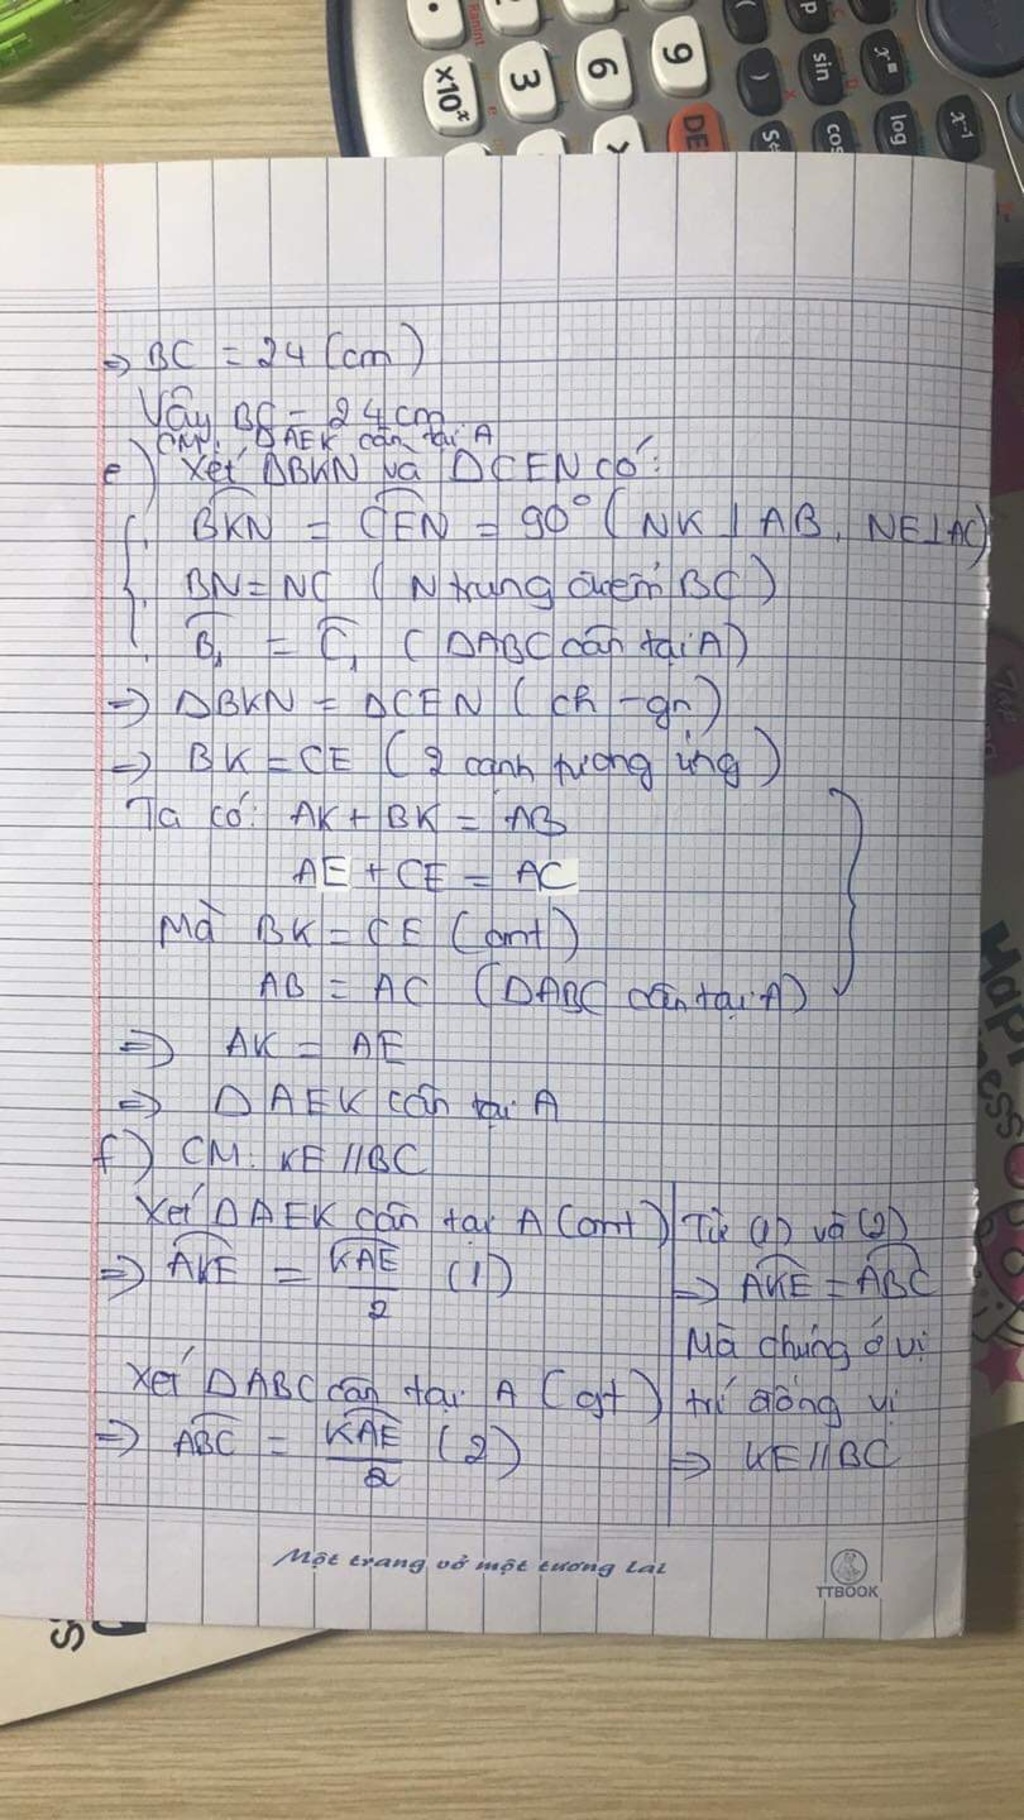 .
Ranint
p
x■
x⁻¹
×10ˣ
3
6
9
)
sin
log
DE
cos
⇒ BC = 24 (cm)
Vậy BC = 24 cm
CM: ΔAEK cân tại A
e) Xét ΔBKN và ΔCEN có:
BKN = CEN = 90° (NK ⊥ AB, NE⊥AC)
BN = NC (N trung điểm BC)
B₁ = C₁ (ΔABC cân tại A)
⇒ ΔBKN = ΔCEN (ch - gn)
⇒ BK = CE (2 cạnh tương ứng)
Ta có: AK + BK = AB
AE + CE = AC
Mà BK = CE (cmt)
AB = AC (ΔABC cân tại A)
⇒ AK = AE
⇒ ΔAEK cân tại A
f) CM: KE // BC
Xét ΔAEK cân tại A (cmt)
⇒ AKE = KAE/2 (1)
Xét ΔABC cân tại A (gt)
⇒ ABC = KAE/2 (2)
Từ (1) và (2)
⇒ AKE = ABC
Mà chúng ở vị
trí đồng vị
⇒ KE // BC
Một trang vở một tương lai
TTBOOK